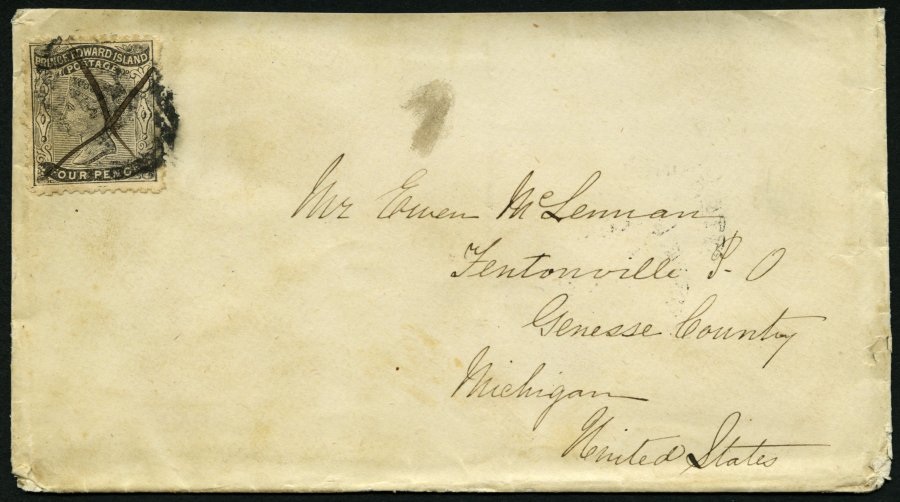 PRINCE EDWARD ISLAND
POSTAGE
FOUR PENCE
Mr Ewen McLennan
Fentonville P-O
Genesse County
Michigan
United States